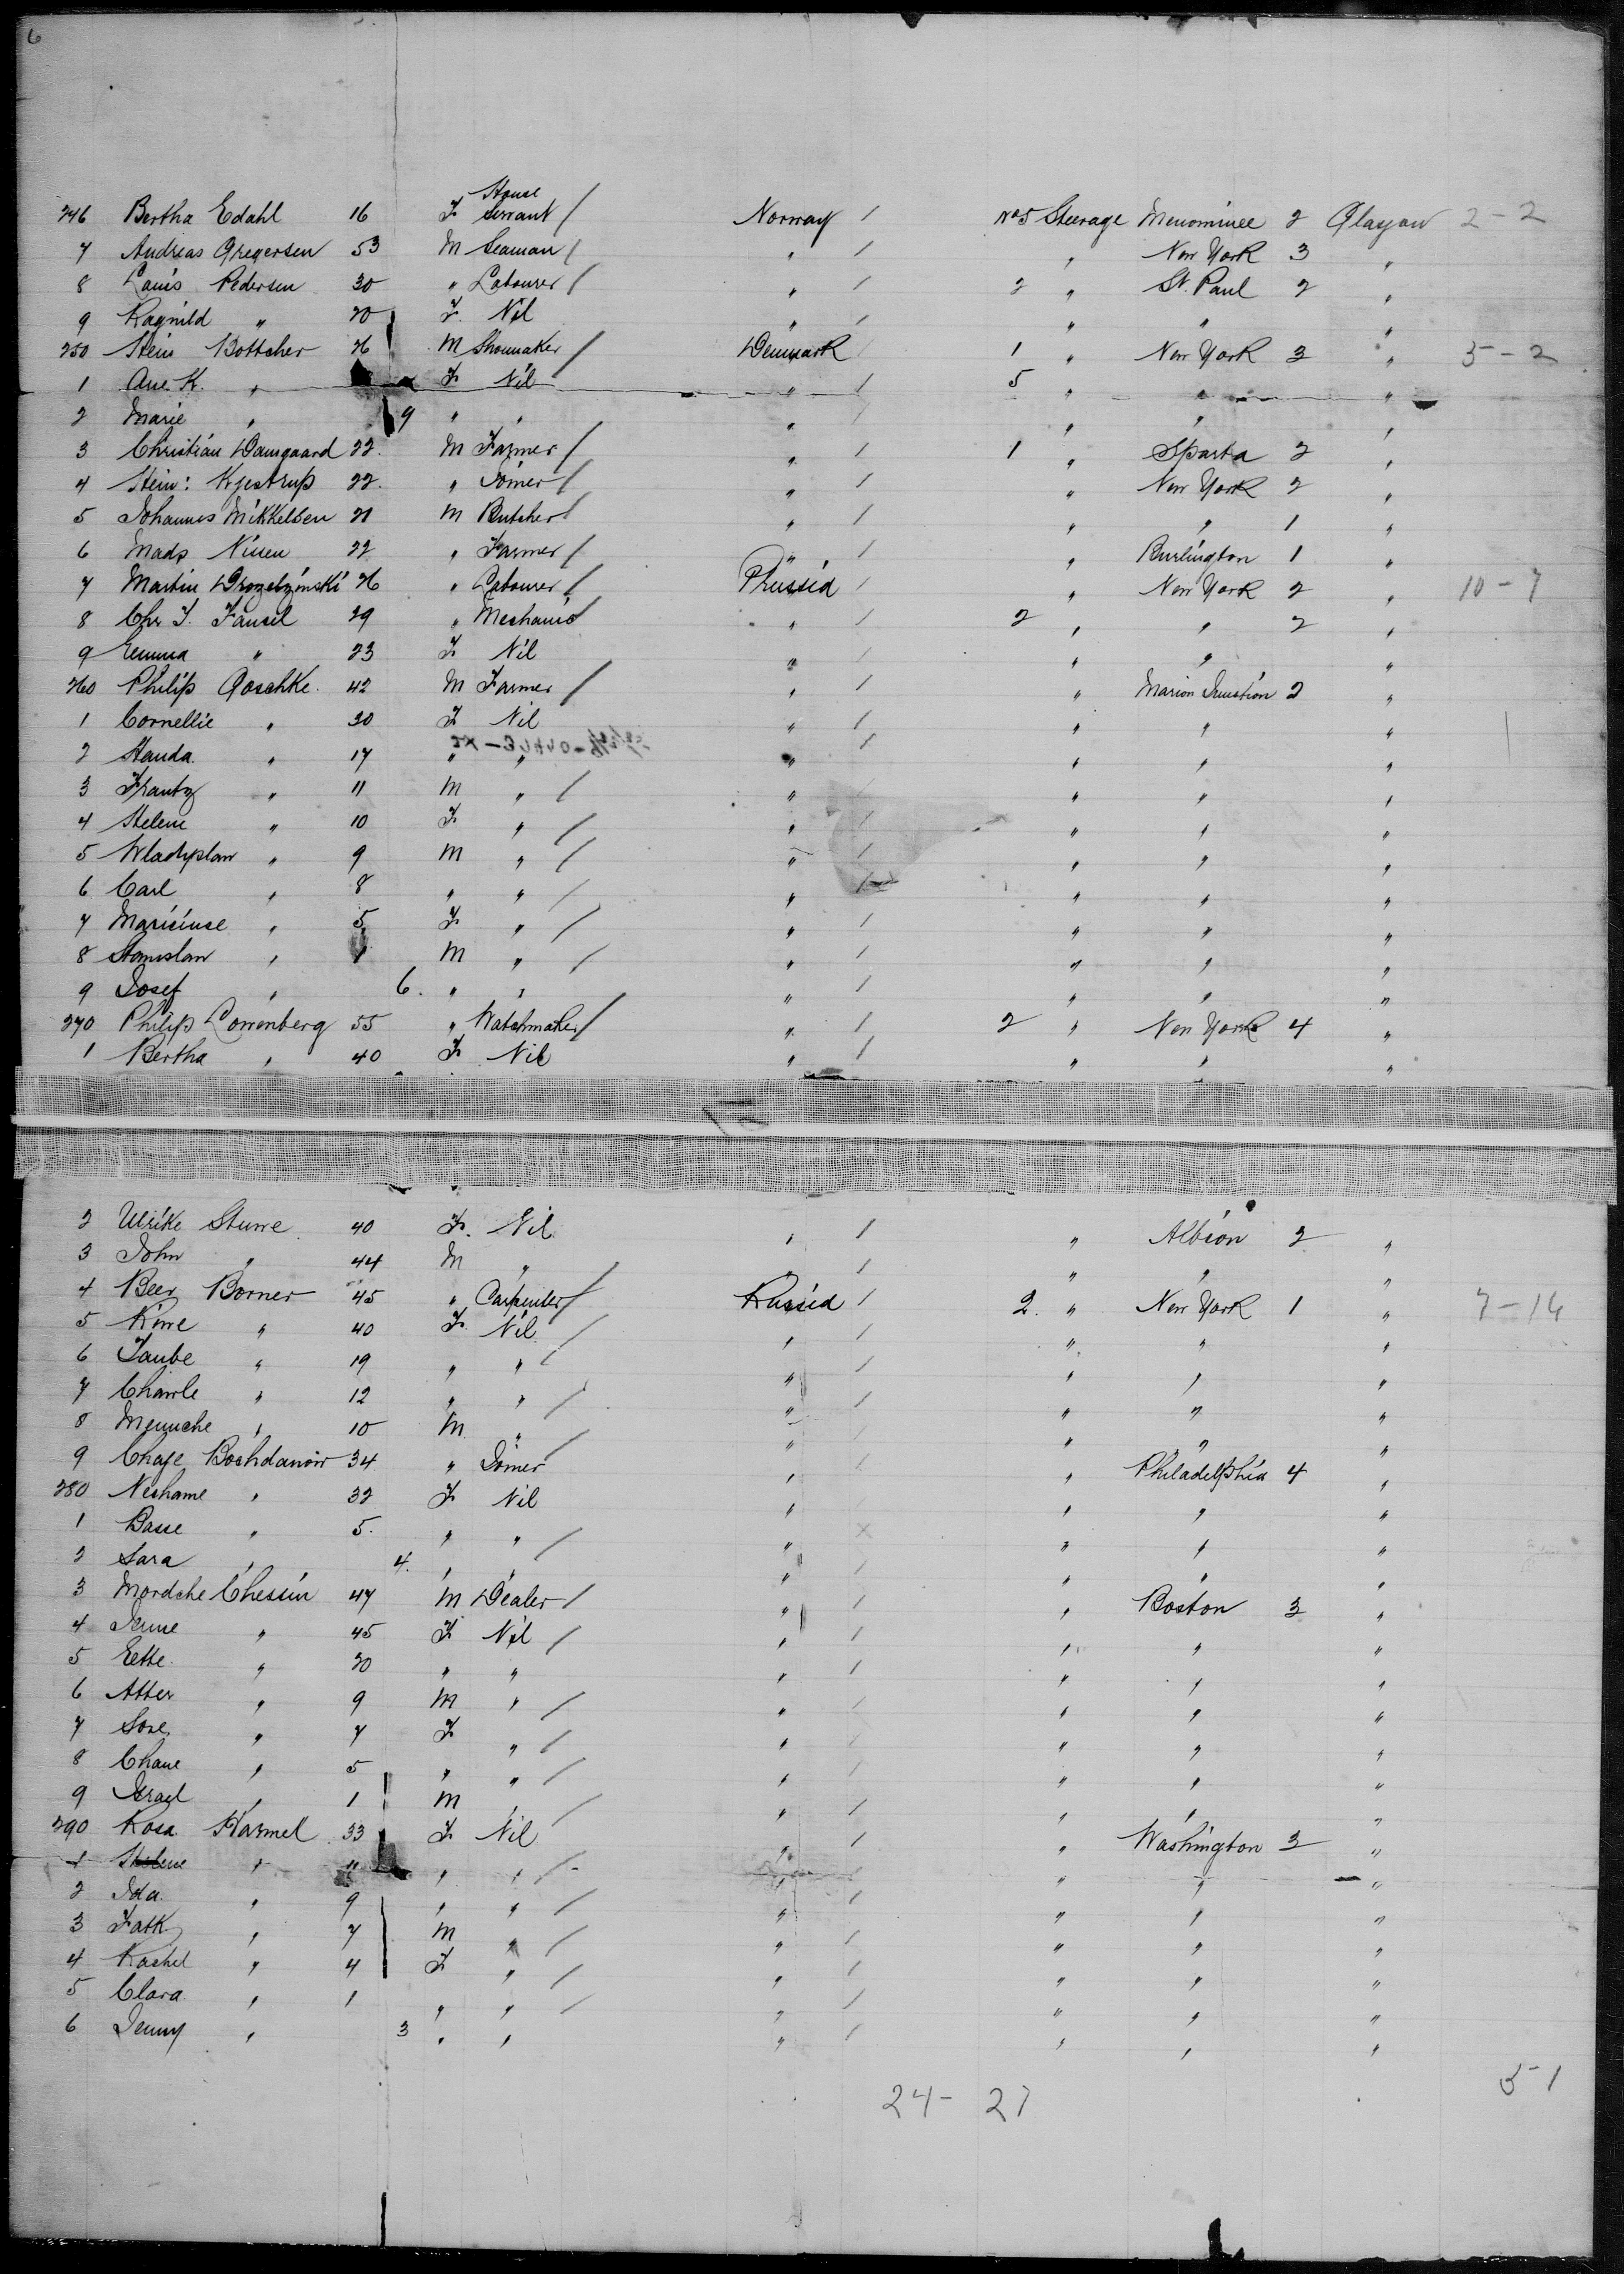 6
246 Bertha Edahl 16 F House Servant / Norway / No 5 Steerage Menominee 2 Glasgow 2-2
7 Andreas Gregersen 53 M Seaman / " / " New York 3 "
8 Louis Pedersen 30 " Labourer / " / 2 " St. Paul 2 "
9 Ragnild " 20 F. Nil " / " " "
250 Hein Bottcher 26 M Shoemaker / Denmark / 1 " New York 3 " 5-2
1 Ane. K. " F Nil " / 5 " " "
2 Marie " 9 " " " / " " "
3 Christian Damgaard 22. M Farmer / " / 1 " Sparta 2 "
4 Hein: Kjestrup 22. " Joiner / " / " New York 2 "
5 Johannes Mikkelsen 21 M Butcher / " / " " 1 "
6 Mads Nissen 22 " Farmer / " / " Burlington 1 "
7 Martin 26 " Labourer / Prussia / " New York 2 " 10-7
8 Chr. J. Fausel 29 " Mechanic / " / 2 " " 2 "
9 Emma " 23 F Nil " / " " "
260 Philip Goschke. 42 M Farmer / " / " Marion Junction 2 "
1 Cornellie " 30 F Nil " / " " "
2 Handa. " 17 " " " / " " "
3 Frantz " 11 M " / " / " " "
4 Helene " 10 F " / " / " " "
5 Wladyslaw " 9 M " / " / " " "
6 Carl " 8 " " / " / " " "
7 " 5 F " / " / " " "
8 Stanislaw " 1 M " / " / " " "
9 Josef " 6. " " " / " " "
270 Philip Lowenberg 55 " Watchmaker / " / 2 " New York 4 "
1 Bertha " 40 F Nil " / " " "
2 Ulrike Stuwe. 40 F. Nil " / " Albion 2 "
3 John " 44 M " " / " " "
4 Beer Borner 45 " Carpenter / Russia / 2. " New York 1 " 7-14
5 " 40 F Nil / " / " " "
6 Taube " 19 " " / " / " " "
7 Chawle " 12 " " / " / " " "
8 " 10 M " / " / " " "
9 Chaje Boshdanow 34 " Joiner " / " Philadelphia 4 "
280 Neshame " 32 F Nil " / " " "
1 Basse " 5. " " / " x " " "
2 Sara " 4. " " " / " " "
3 Mordche Chessin 47 M Dealer / " / " Boston 3 "
4 " 45 F Nil / " / " " "
5 Eette. " 20 " " " / " " "
6 Atter " 9 M " / " / " " "
7 Sore " 7 F " / " / " " "
8 Chane " 5 " " / " / " " "
9 Israel " 1 M " / " / " " "
290 Rosa Harmel 33 F Nil " / " Washington 3 "
1 Helene " 11 " " / " / " " "
2 Ida. " 9 " " / " / " " "
3 " 7 M " / " / " " "
4 Rachel " 4 F " / " / " " "
5 Clara. " 1 " " / " / " " "
6 Jenny " 3 " " " / " " "
5-1
24-27